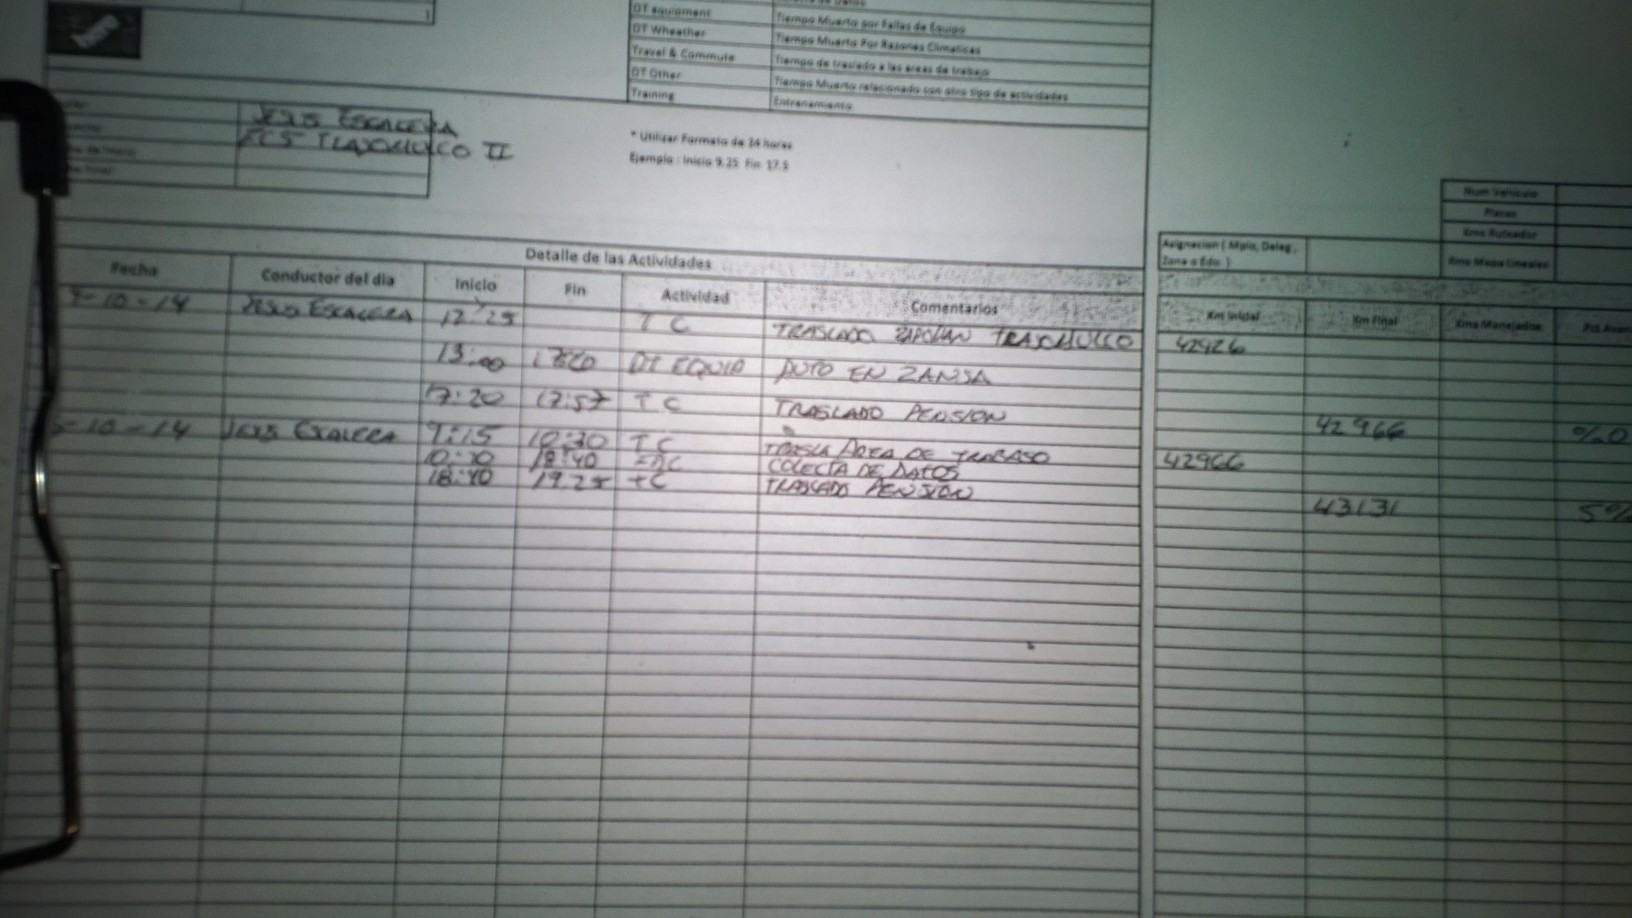 DT equipment Tiempo Muerto por Fallas de Equipo
DT Wheather Tiempo Muerto Por Razones Climaticas
Travel & Commute Tiempo de traslado a las areas de trabajo
DT Other Tiempo Muerto relacionado con otro tipo de actividades
Training Entrenamiento
* Utilizar Formato de 24 horas
Ejemplo : Inicio 9.25 Fin 17.5
JESUS ESCALERA
TLAJOMULCO II
Num Vehiculo
Placas
Kms Ruteador
Kms Mapa Lineales
Asignacion ( Mpio, Deleg,
Zona o Edo. )
Detalle de las Actividades
Fecha Conductor del dia Inicio Fin Actividad Comentarios Km Inicial Km Final Kms Manejados
-10-14 JESUS ESCALERA 12:25 TC TRASLADO ZAPOPAN TLAJOMULCO 42926
13:00 DT EQUIP AUTO EN ZANSA
17:20 17:57 TC TRASLADO PENSION 42966 %0
-10-14 JESUS ESCALERA 9:15 10:30 TC AREA DE TRABAJO 42966
10:30 18:40 COLECTA DE DATOS
18:40 19:25 TC TRASLADO PENSION 43131 5%